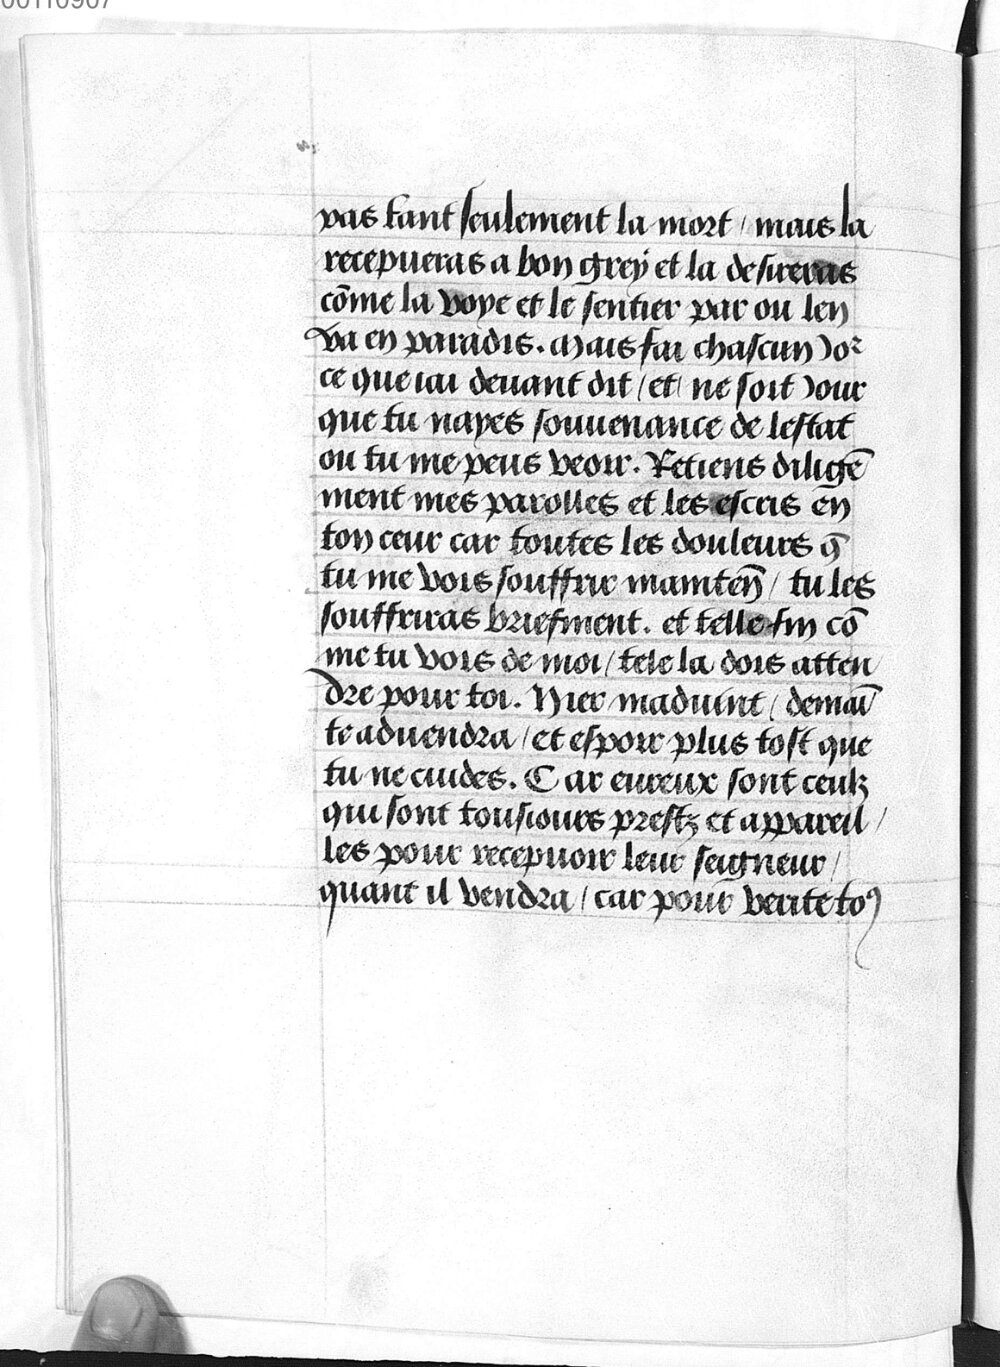 pas tant seulement la mort / mais la
recepueras a bon grey et la desireras
cōme la voye et le sentier par ou len
va en paradis. Mais fai chascun Jor
ce que iai deuant dit / et ne soit Jour
que tu nayes souuenance de lestat
ou tu me peus veoir. Retiens diligē
ment mes parolles et les escris en
ton ceur car toutes les douleurs q̄
tu me vois souffrir maintēn / tu les
souffriras briefment. et telle fin cō
me tu vois de moi / tele la dois atten
dre pour toi. Hier maduint / demaī
te aduendra / et espoir plus tost que
tu ne cuides. Car eureux sont ceulz
qui sont tousiours prestz et appareil /
les pour recepuoir leur seigneur /
quant il vendra / car pour verite toꝰ